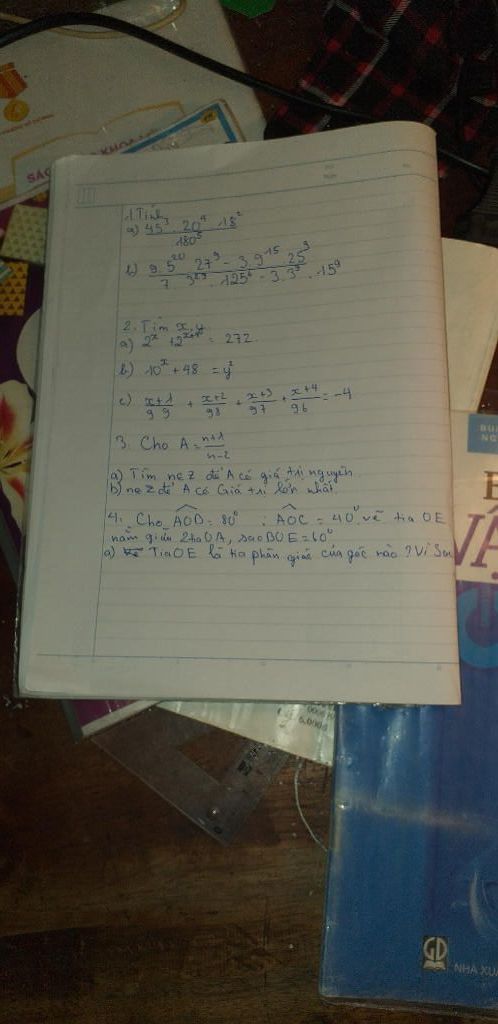 SÁC
KHOA
1. Tính
a) 45³ . 20⁴ . 18² / 180⁵
b) 9 . 5²⁰ . 27⁹ - 3 . 9¹⁵ . 25⁹ / 7 . 3²⁹ . 125⁶ - 3 . 3⁹ . 15⁹
2. Tìm x, y
a) 2ˣ + 2ˣ⁺⁴ = 272
b) 10ˣ + 48 = y²
c) x+1/99 + x+2/98 + x+3/97 + x+4/96 = -4
3. Cho A = n+1/n-2
a) Tìm n∈Z để A có giá trị nguyên
b) n∈Z để A có Giá trị lớn nhất.
4. Cho AOD = 80⁰ ; AOC = 40⁰ vẽ tia OE
nằm giữa 2 tia OA, sao BOE = 60⁰
a) Tia OE là tia phân giác của góc nào? Vì Sao
BÙI
NG
VẬ
GD
NHÀ XUẤ